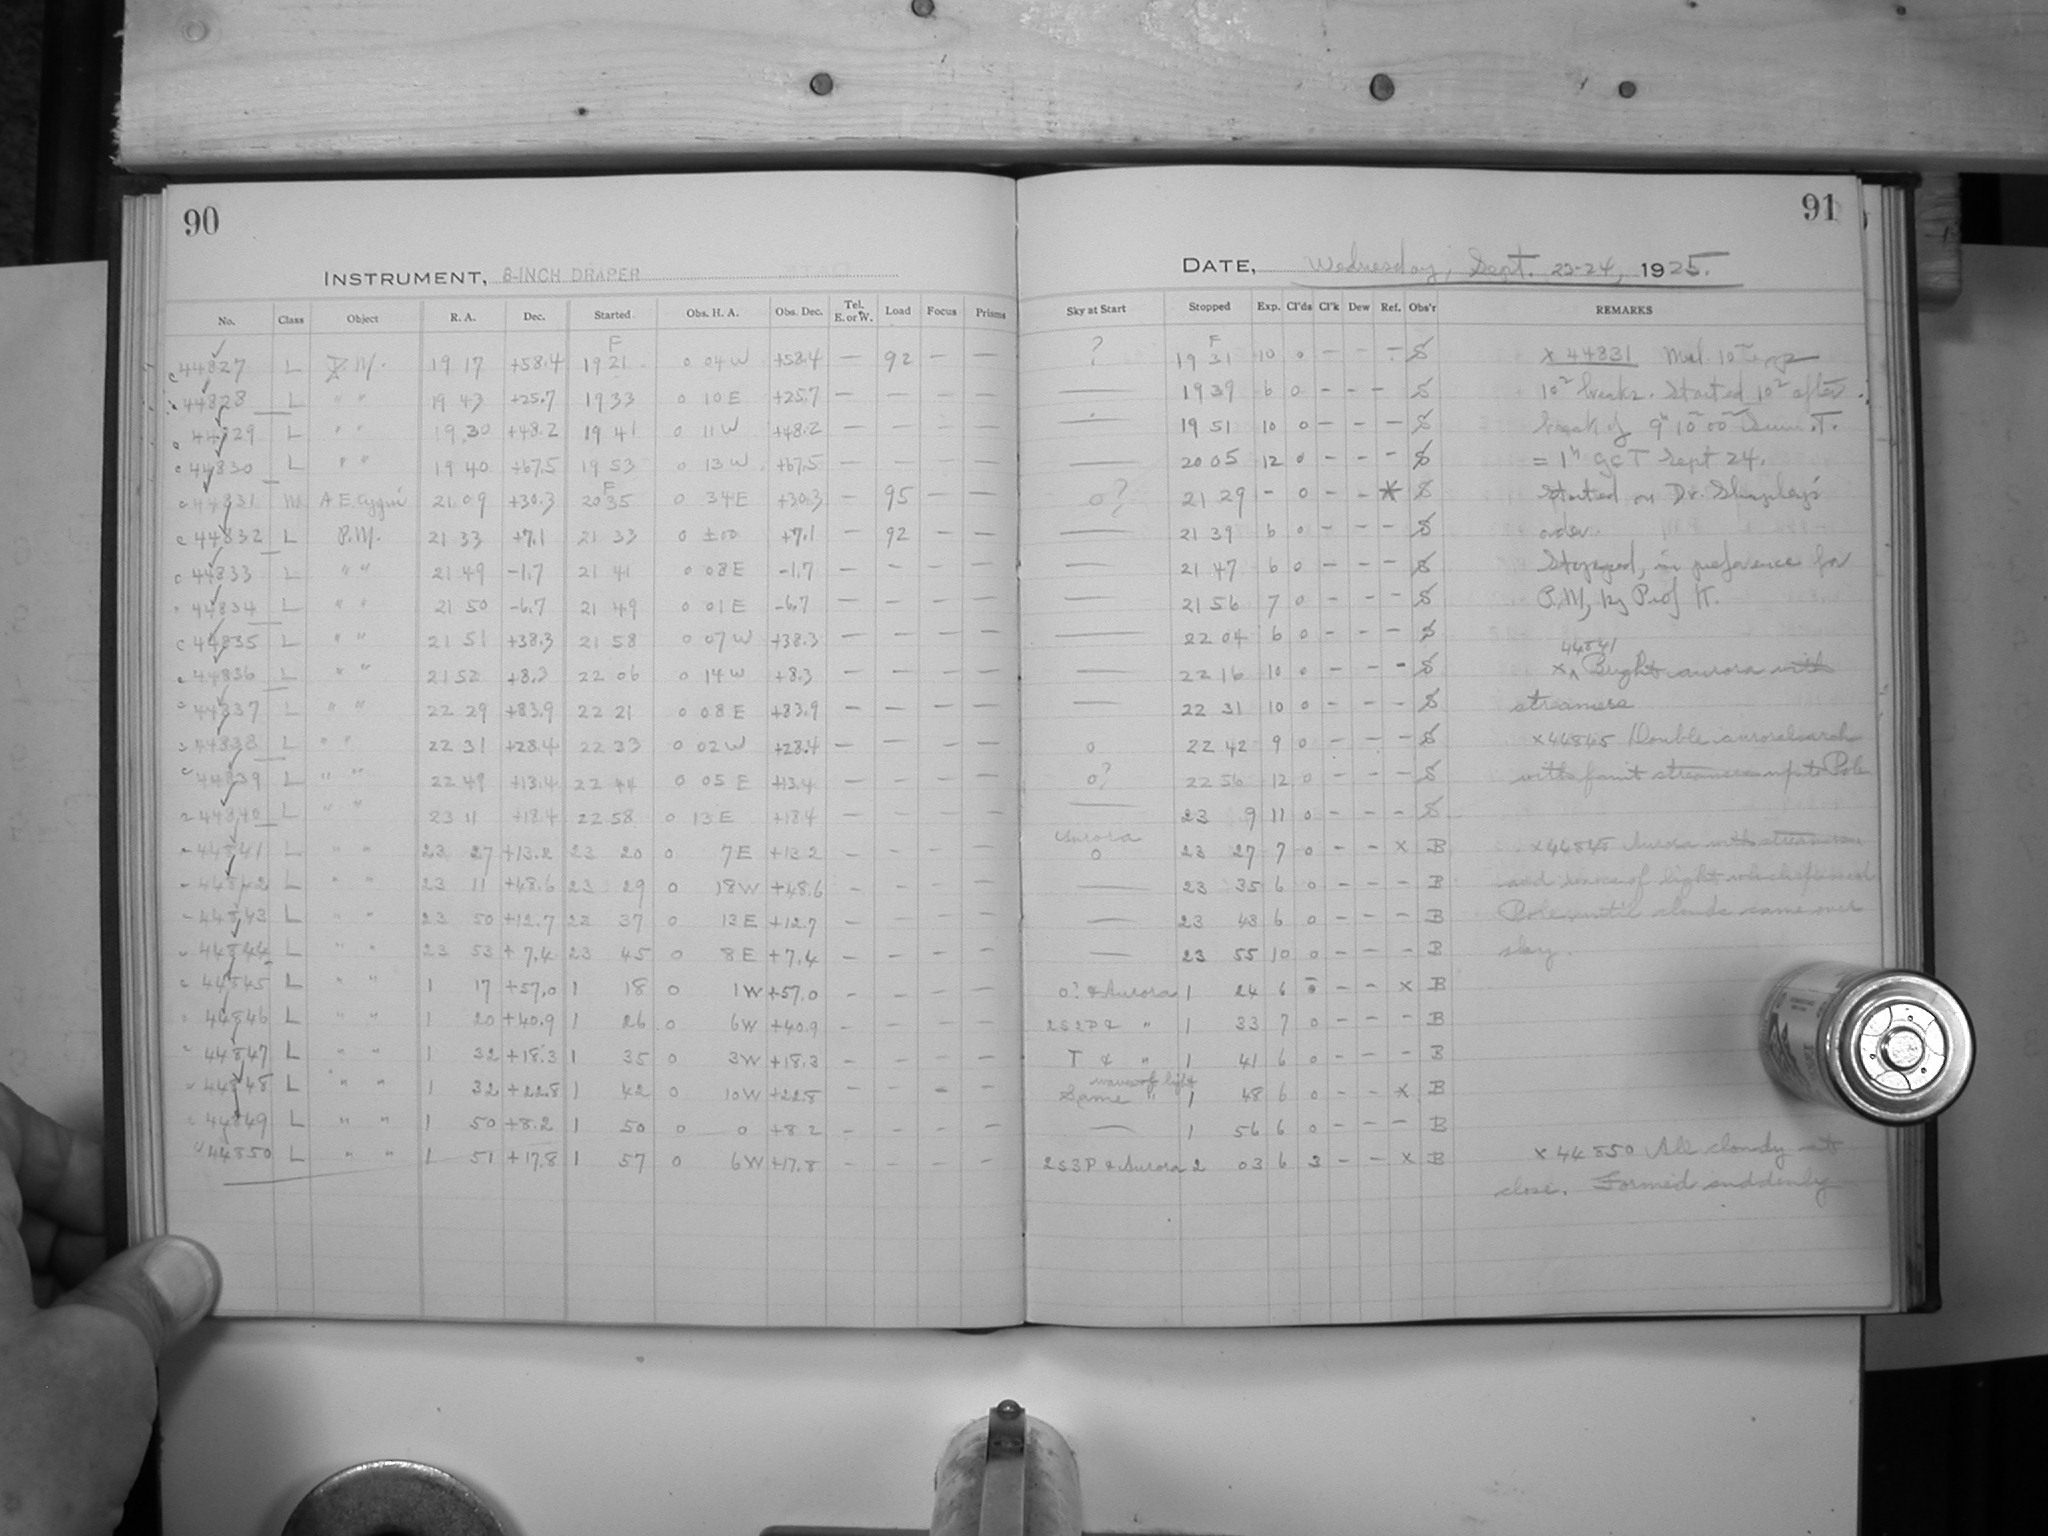 90
INSTRUMENT, 8-INCH DRAPER
No. Class Object R. A. Dec. Started Obs. H. A. Obs. Dec. Tel. E. or W. Load Focus Prisms
44827 L P.M. 19 17 +58.4 F 19 21 0 04 W +58.4 — 92 — —
44828 L " " 19 43 +25.7 19 33 0 10 E +25.7 — — — —
44829 L " " 19 30 +48.2 19 41 0 11 W +48.2 — — — —
44830 L " " 19 40 +67.5 19 53 0 13 W +67.5 — — — —
44831 M A E Cygni 21 09 +30.3 F 20 35 0 34 E +30.3 — 95 — —
44832 L P.M. 21 33 +7.1 21 33 0 ±00 +7.1 — 92 — —
44833 L " " 21 49 -1.7 21 41 0 08 E -1.7 — — — —
44834 L " " 21 50 -6.7 21 49 0 01 E -6.7 — — — —
44835 L " " 21 51 +38.3 21 58 0 07 W +38.3 — — — —
44836 L " " 21 52 +8.3 22 06 0 14 W +8.3 — — — —
44837 L " " 22 29 +83.9 22 21 0 08 E +83.9 — — — —
44838 L " " 22 31 +28.4 22 33 0 02 W +28.4 — — — —
44839 L " " 22 49 +13.4 22 44 0 05 E +13.4 — — — —
44840 L " " 23 11 +18.4 22 58 0 13 E +18.4 — — — —
44841 L " " 23 27 +13.2 23 20 0 7 E +13.2 — — — —
44842 L " " 23 11 +48.6 23 29 0 18 W +48.6 — — — —
44843 L " " 23 50 +12.7 23 37 0 13 E +12.7 — — — —
44844 L " " 23 53 +7.4 23 45 0 8 E +7.4 — — — —
44845 L " " 1 17 +57.0 1 18 0 1 W +57.0 — — — —
44846 L " " 1 20 +40.9 1 26 0 6 W +40.9 — — — —
44847 L " " 1 32 +18.3 1 35 0 3 W +18.3 — — — —
44848 L " " 1 32 +22.8 1 42 0 10 W +22.8 — — — —
44849 L " " 1 50 +8.2 1 50 0 0 +8.2 — — — —
44850 L " " 1 51 +17.8 1 57 0 6 W +17.8 — — — —
91
DATE, Wednesday, Sept. 23-24, 1925.
Sky at Start Stopped Exp. Cl'ds Cl'k Dew Ref. Obs'r REMARKS
? F 19 31 10 0 — — — S x 44831 Mul. 10m
— 19 39 6 0 — — — S 10s breaks. Started 10s after
— 19 51 10 0 — — — S break of 9h 10m 00s T.
— 20 05 12 0 — — — S = 1h GCT Sept 24.
0? 21 29 — 0 — — * S Started on Dr. Shapley's
— 21 39 6 0 — — — S order.
— 21 47 6 0 — — — S Stopped, in preference for
— 21 56 7 0 — — — S P.M, by Prof K.
— 22 04 6 0 — — — S 44841
— 22 16 10 0 — — — S x Bright aurora with
— 22 31 10 0 — — — S streamers
0 22 42 9 0 — — — S x44845 Double auroral arch
0? 22 56 12 0 — — — S with faint streamers up to Pole
— 23 9 11 0 — — — S
Aurora 0 23 27 7 0 — — x B x44848 Aurora with streamers
— 23 35 6 0 — — — B and waves of light
— 23 43 6 0 — — — B Pole until clouds came over
— 23 55 10 0 — — — B sky.
0? & Aurora 1 24 6 0 — — x B
2S2P & " 1 33 7 0 — — — B
T & " 1 41 6 0 — — — B
Same " waves of light 1 48 6 0 — — x B
— 1 56 6 0 — — — B
2S3P & Aurora 2 03 6 3 — — x B x 44850 All cloudy at
close. Formed suddenly